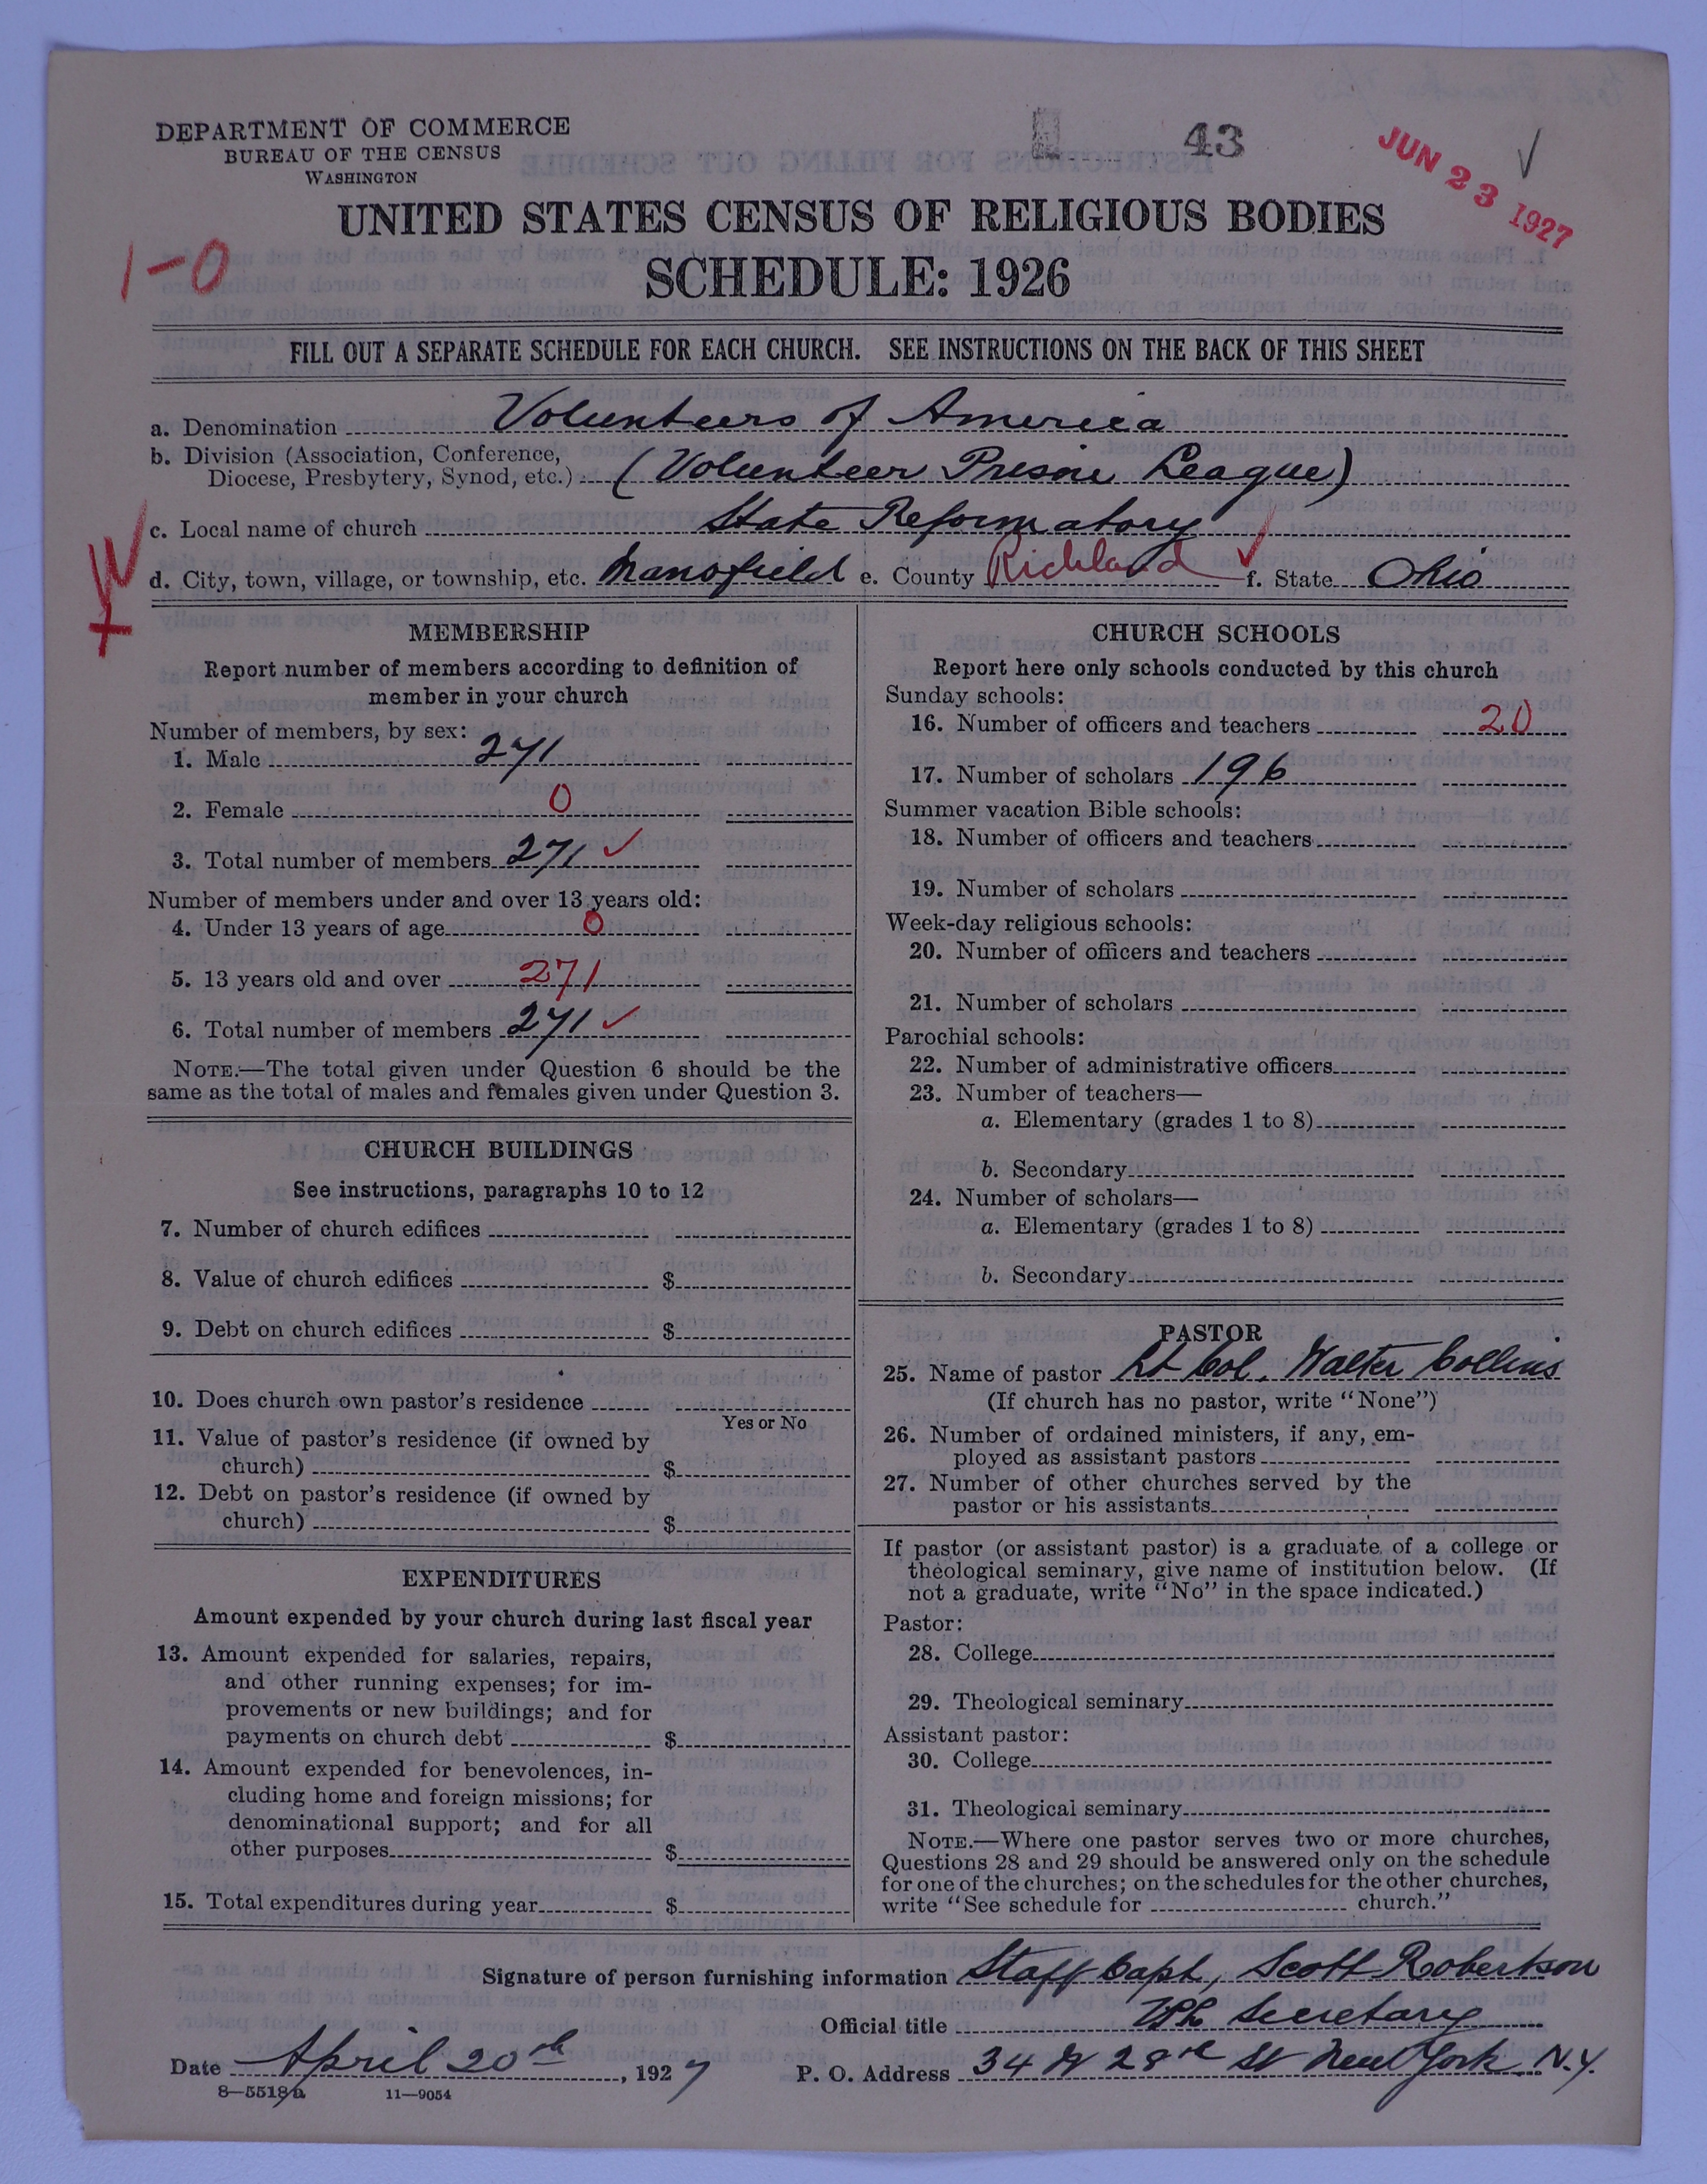 DEPARTMENT OF COMMERCE
BUREAU OF THE CENSUS
WASHINGTON
43
JUN 23 1927
UNITED STATES CENSUS OF RELIGIOUS BODIES
1-0
SCHEDULE: 1926
FILL OUT A SEPARATE SCHEDULE FOR EACH CHURCH. SEE INSTRUCTIONS ON THE BACK OF THIS SHEET
a. Denomination Volunteers of America
b. Division (Association, Conference,
Diocese, Presbytery, Synod, etc.) (Volunteer Prison League)
c. Local name of church State Reformatory
d. City, town, village, or township, etc. Mansfield e. County Richland f. State Ohio
MEMBERSHIP
Report number of members according to definition of
member in your church
Number of members, by sex:
1. Male 271
2. Female 0
3. Total number of members 271 ✓
Number of members under and over 13 years old:
4. Under 13 years of age 0
5. 13 years old and over 271
6. Total number of members 271 ✓
NOTE.—The total given under Question 6 should be the
same as the total of males and females given under Question 3.
CHURCH BUILDINGS
See instructions, paragraphs 10 to 12
7. Number of church edifices
8. Value of church edifices $
9. Debt on church edifices $
10. Does church own pastor's residence
Yes or No
11. Value of pastor's residence (if owned by
church) $
12. Debt on pastor's residence (if owned by
church) $
EXPENDITURES
Amount expended by your church during last fiscal year
13. Amount expended for salaries, repairs,
and other running expenses; for im-
provements or new buildings; and for
payments on church debt $
14. Amount expended for benevolences, in-
cluding home and foreign missions; for
denominational support; and for all
other purposes $
15. Total expenditures during year $
CHURCH SCHOOLS
Report here only schools conducted by this church
Sunday schools:
16. Number of officers and teachers 20
17. Number of scholars 196
Summer vacation Bible schools:
18. Number of officers and teachers
19. Number of scholars
Week-day religious schools:
20. Number of officers and teachers
21. Number of scholars
Parochial schools:
22. Number of administrative officers
23. Number of teachers—
a. Elementary (grades 1 to 8)
b. Secondary
24. Number of scholars—
a. Elementary (grades 1 to 8)
b. Secondary
PASTOR
25. Name of pastor Lt Col. Walter Collins
(If church has no pastor, write "None")
26. Number of ordained ministers, if any, em-
ployed as assistant pastors
27. Number of other churches served by the
pastor or his assistants
If pastor (or assistant pastor) is a graduate of a college or
theological seminary, give name of institution below. (If
not a graduate, write "No" in the space indicated.)
Pastor:
28. College
29. Theological seminary
Assistant pastor:
30. College
31. Theological seminary
NOTE.—Where one pastor serves two or more churches,
Questions 28 and 29 should be answered only on the schedule
for one of the churches; on the schedules for the other churches,
write "See schedule for church."
Signature of person furnishing information Staff Capt, Scott Robertson
Official title VPL Secretary
Date April 20th, 1927 P. O. Address 34 W 28th St New York N.Y.
8—5518a 11—9054